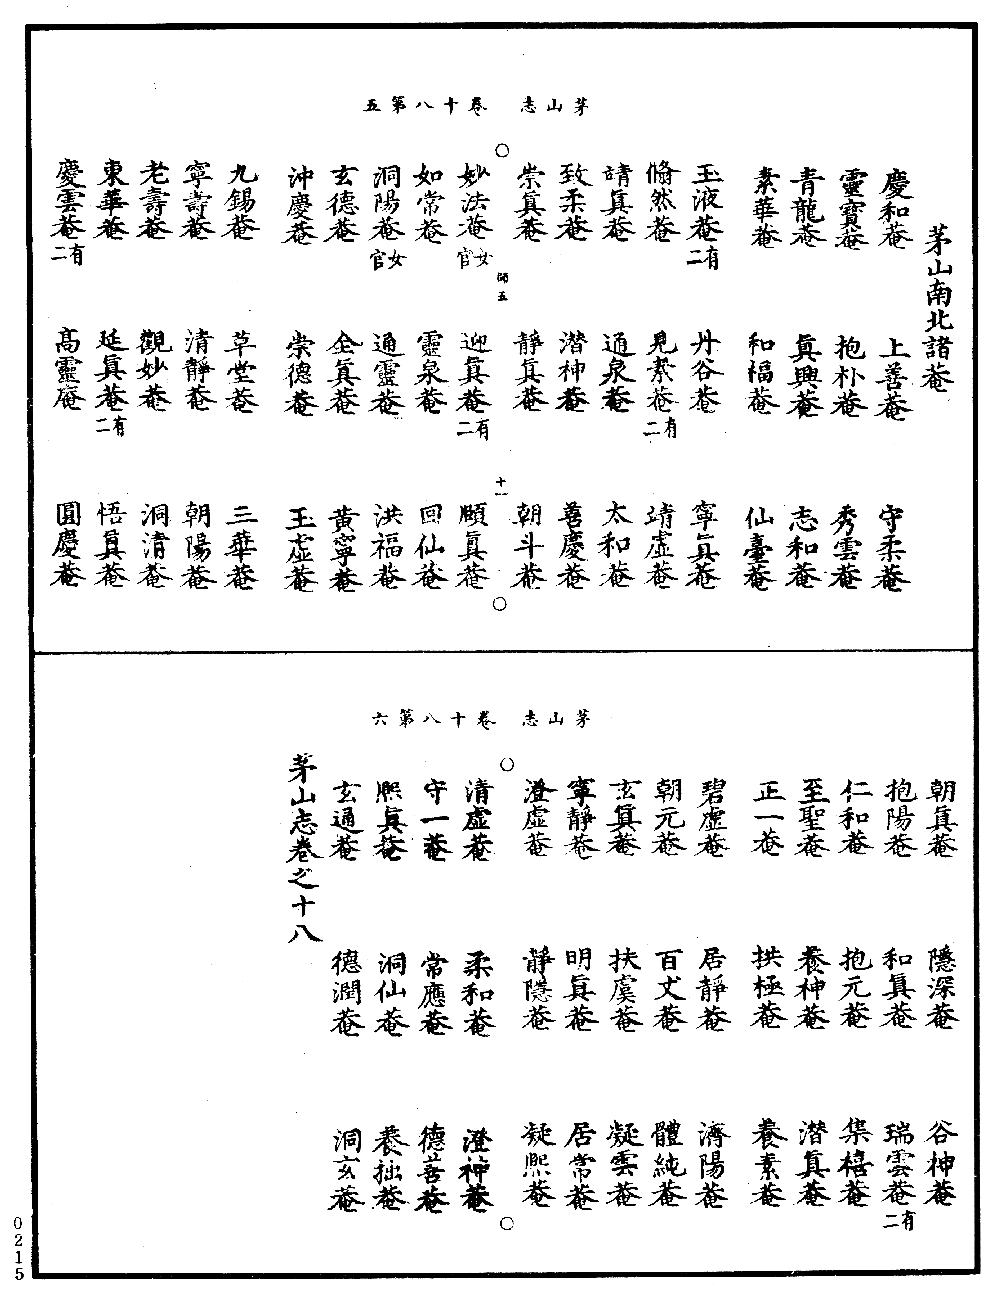 茅山志　卷十八第五
茅山南北諸菴
慶和菴　上善菴　守柔菴
靈寶菴　抱朴菴　秀雲菴
青龍菴　眞興菴　志和菴
素華菴　和福菴　仙臺菴
玉液菴有二　丹谷菴　寧眞菴
翛然菴　見素菴有二　靖虛菴
靖眞菴　通泉菴　太和菴
致柔菴　潛神菴　善慶菴
崇眞菴　靜眞菴　朝斗菴
師五　十一
妙法菴女官　迎眞菴有二　頤眞菴
如常菴　靈泉菴　回仙菴
洞陽菴女官　通靈菴　洪福菴
玄德菴　全眞菴　黃寧菴
沖慶菴　崇德菴　玉虛菴
九錫菴　草堂菴　三華菴
寧壽菴　清靜菴　朝陽菴
老壽菴　觀妙菴　洞清菴
東華菴　延眞菴有二　悟眞菴
慶雲菴有二　高靈庵　圓慶菴
茅山志　卷十八第六
朝眞菴　隱深菴　谷神菴
抱陽菴　和眞菴　瑞雲菴有二
仁和菴　抱元菴　集禧菴
至聖菴　養神菴　潛眞菴
正一菴　拱極菴　養素菴
碧虛菴　居靜菴　濟陽菴
朝元菴　百丈菴　體純菴
玄眞菴　扶虞菴　凝雲菴
寧靜菴　明眞菴　居常菴
澄虛菴　靜隱菴　凝熙菴
清虛菴　柔和菴　澄神菴
守一菴　常應菴　德善菴
熙眞菴　洞仙菴　養拙菴
玄通菴　德潤菴　洞玄菴
茅山志卷之十八
0215